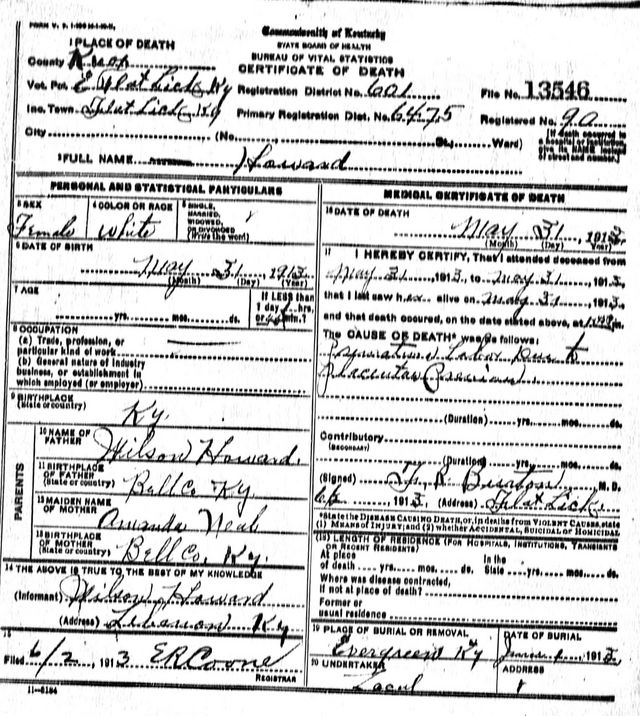 FORM V. S. 1-
Commonwealth of Kentucky
STATE BOARD OF HEALTH
BUREAU OF VITAL STATISTICS
CERTIFICATE OF DEATH
1 PLACE OF DEATH
County Knox
Vot. Pct. E Flat Lick Ky Registration District No. 601 File No. 13546
Inc. Town Flat Lick Ky Primary Registration Dist. No. 6475 Registered No. 90
City (No. St., Ward) [If death occurred in a hospital or institution, give its NAME instead of street and number.]
2 FULL NAME Howard
PERSONAL AND STATISTICAL PARTICULARS
3 SEX Female
4 COLOR OR RACE White
5 SINGLE, MARRIED, WIDOWED, OR DIVORCED (Write the word)
6 DATE OF BIRTH
May 31, 1913
(Month) (Day) (Year)
7 AGE yrs. mos. ds. If LESS than 1 day hrs. or min.?
8 OCCUPATION
(a) Trade, profession, or particular kind of work
(b) General nature of industry business, or establishment in which employed (or employer)
9 BIRTHPLACE (State or country) Ky.
PARENTS
10 NAME OF FATHER Wilson Howard.
11 BIRTHPLACE OF FATHER (State or country) Bell Co Ky.
12 MAIDEN NAME OF MOTHER Amanda Neal
13 BIRTHPLACE OF MOTHER (State or country) Bell Co. Ky.
14 THE ABOVE IS TRUE TO THE BEST OF MY KNOWLEDGE
(Informant) Wilson Howard
(Address) Ky
15
Filed 6/2, 1913 ER Coone
REGISTRAR
11-3184
MEDICAL CERTIFICATE OF DEATH
16 DATE OF DEATH
May 31 1913
(Month) (Day) (Year)
17 I HEREBY CERTIFY, That I attended deceased from
May 31, 1913, to May 31, 1913,
that I last saw h er alive on May 31, 1913,
and that death occured, on the date stated above, at m.
The CAUSE OF DEATH* was as follows:
Labor Due to
Placenta
(Duration) yrs. mos. ds.
Contributory
(SECONDARY)
(Duration) yrs. mos. ds.
(Signed) Burton M. D.
1913 (Address) Flat Lick
*State the DISEASE CAUSING DEATH, or, in deaths from VIOLENT CAUSES, state (1) MEANS OF INJURY; and (2) whether ACCIDENTAL, SUICIDAL or HOMICIDAL
(18) LENGTH OF RESIDENCE (FOR HOSPITALS, INSTITUTIONS, TRANSIENTS OR RECENT RESIDENTS)
At place of death yrs. mos. ds. In the State yrs. mos. ds.
Where was disease contracted, if not at place of death?
Former or usual residence
19 PLACE OF BURIAL OR REMOVAL
Evergreen Ky
DATE OF BURIAL
June 1, 1913
20 UNDERTAKER
ADDRESS